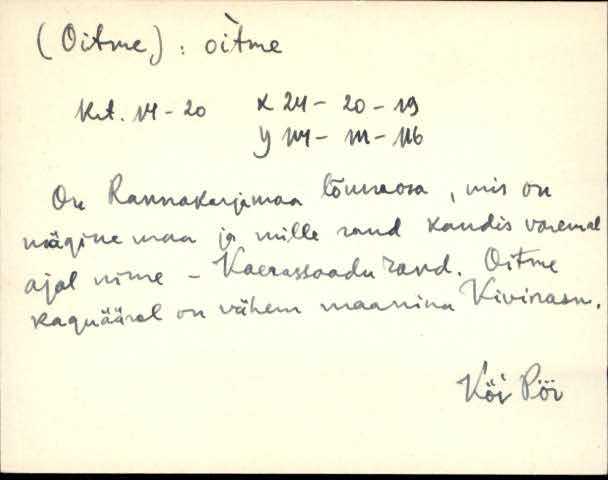 (Oitme,) : oìtme
Krt. 14-20 X 24 - 20 - 19
Y 114 - 111 - 116
On Rannakarjamaa lõunaosa, mis on
mägine maa ja mille rand kandis varemal
ajal nime - Kaerassaadu rand. Oitme
kagnääral on vähem maanina Kivinasu.
Köi Pöi